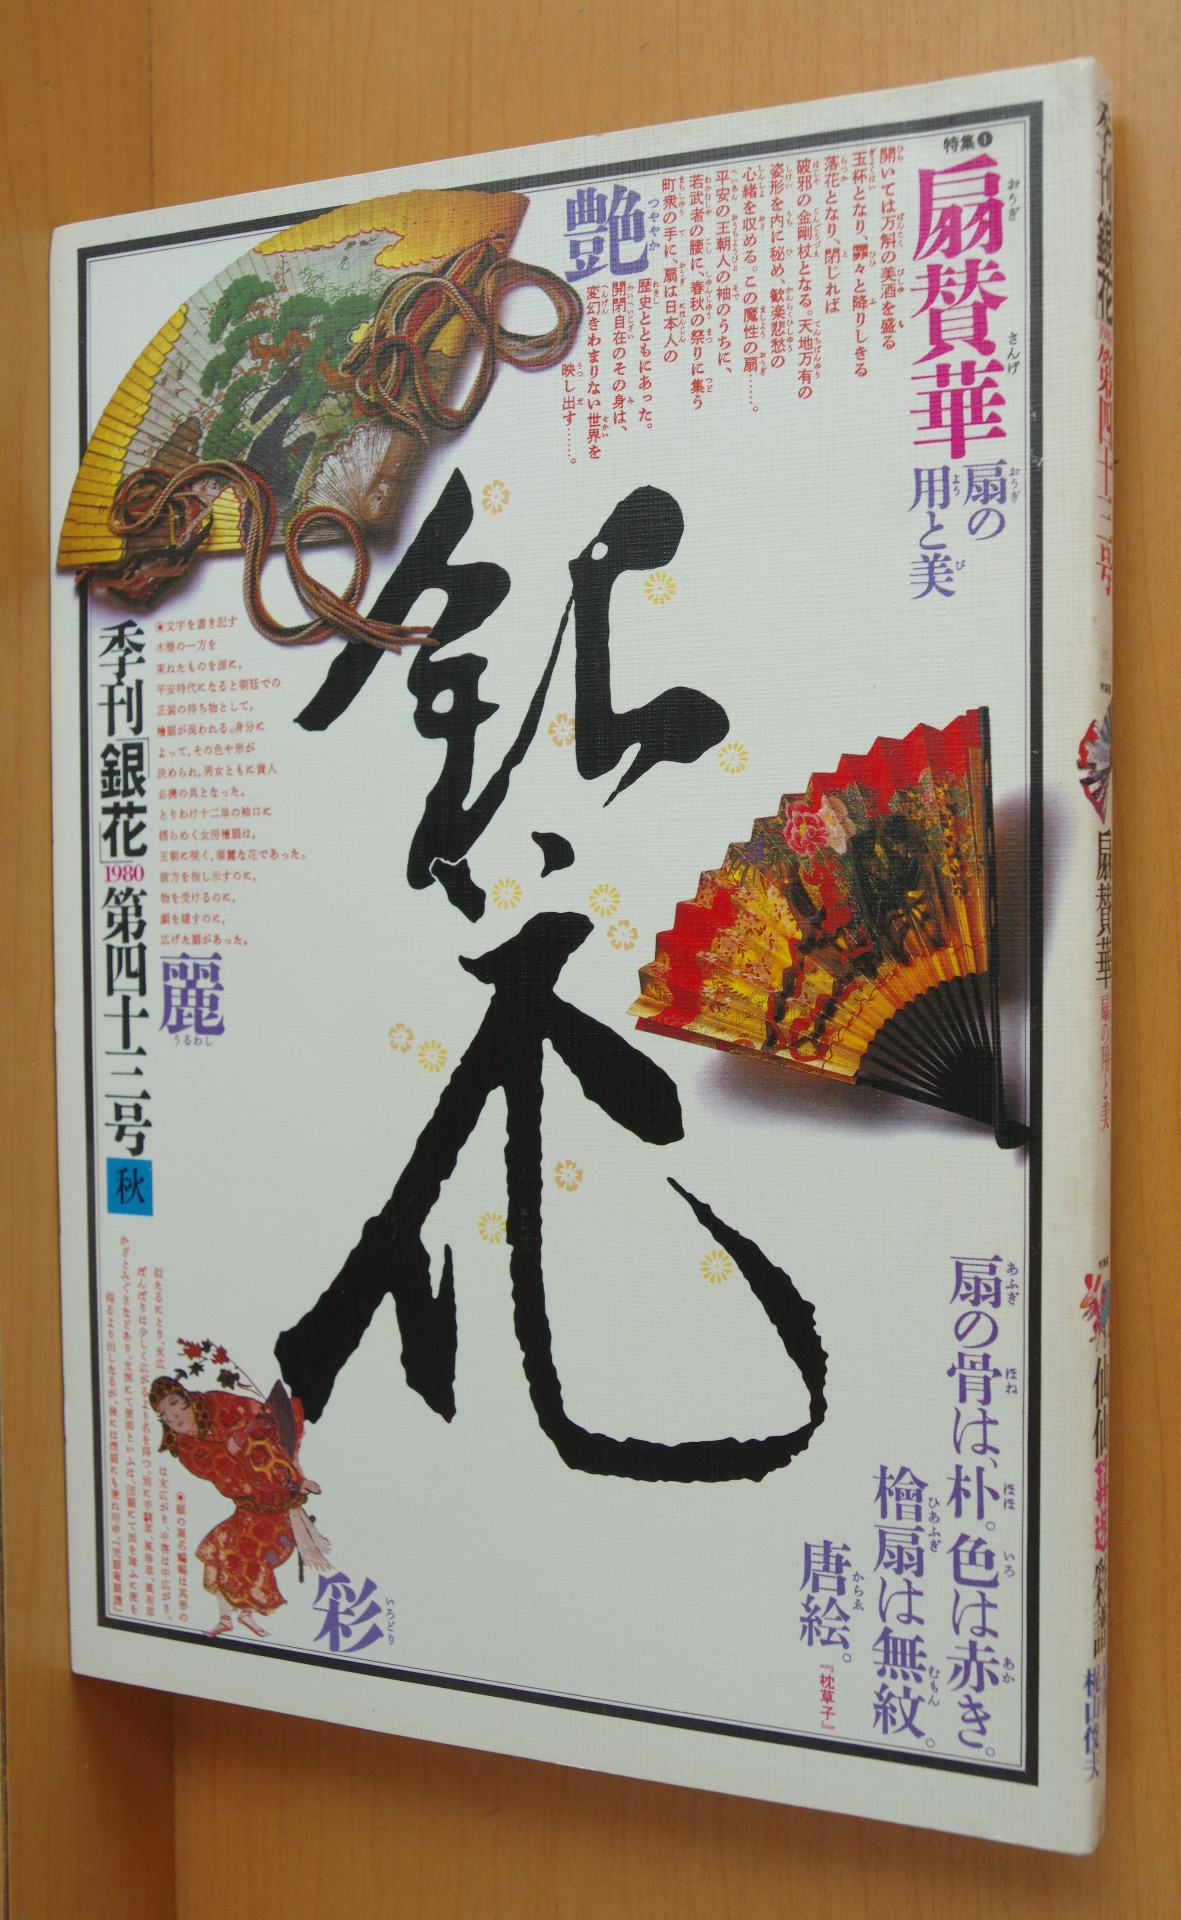 特集❶
扇賛華
おうぎ さんげ
扇の
用と美
おうぎ
よう び
開いては万斛の美酒を盛る
玉杯となり、霏々と降りしきる
落花となり、閉じれば
破邪の金剛杖となる。天地万有の
姿形を内に秘め、歓楽悲愁の
心緒を収める。この魔性の扇……。
平安の王朝人の袖のうちに、
若武者の腰に、春秋の祭りに集う
町衆の手に、扇は日本人の
歴史とともにあった。
開閉自在のその身は、
変幻きわまりない世界を
映し出す……。
艶
つややか
銀花
季刊「銀花」1980第四十三号
秋
◉文字を書き記す
木簡の一方を
束ねたものを源に，
平安時代になると朝廷での
正装の持ち物として，
檜扇が現われる。身分に
よって，その色や形が
決められ，男女ともに貴人
必携の具となった。
とりわけ十二単の袖口に
揺らめく女房檜扇は，
王朝に咲く，華麗な花であった。
彼方を指し示すのに，
物を受けるのに，
顔を隠すのに，
広げた扇があった。
麗
うるわし
彩
いろどり
扇の骨は、朴。色は赤き。
あふぎ ほね ほほ いろ あか
檜扇は無紋。
ひあふぎ むもん
唐絵。
からゑ
『枕草子』
季刊銀花
第四十三号
扇賛華
扇の用と美